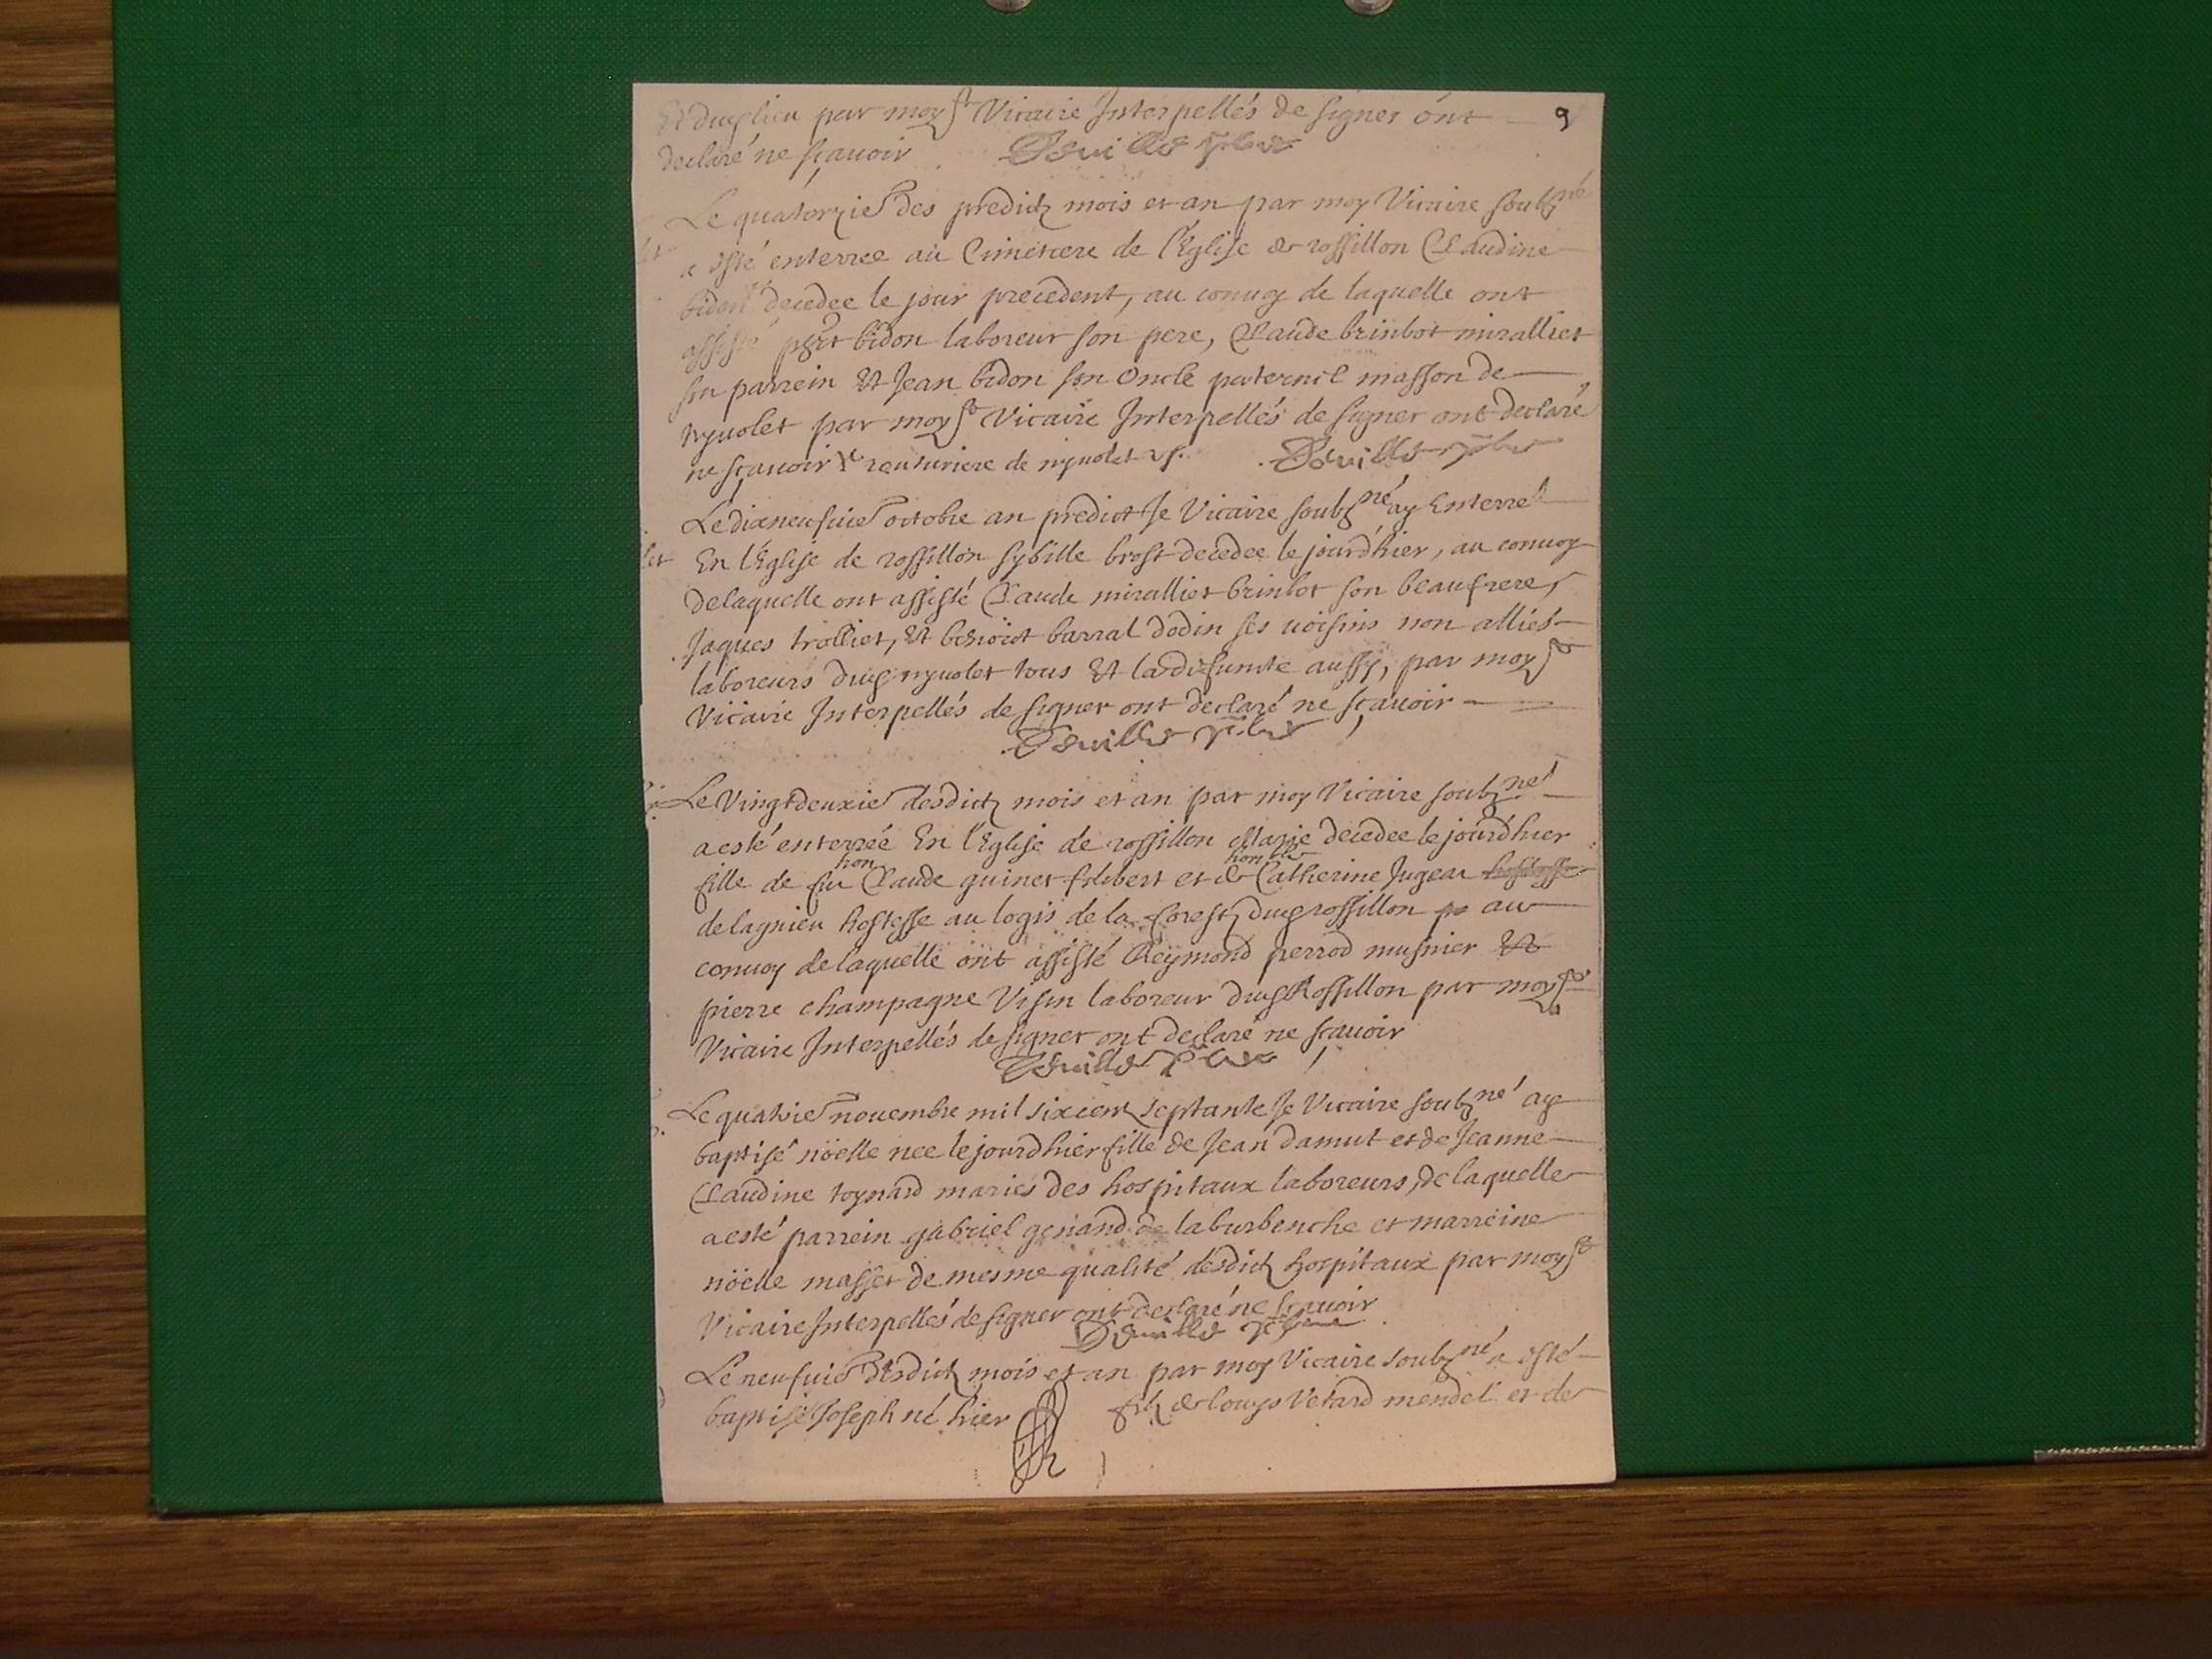 Et dud lieu par moy st Vicaire Interpellés de signer ont
9
declaré ne sçavoir
Le quatorzie des predictz mois et an par moy Vicaire soubzné
a esté enterree au Cimetiere de l'Eglise de rossillon Claudine
bidon decedee le jour precedent, au convoy de laquelle ont
assisté bidon laboreur son pere, Claude brinbot miralliet
son parrein Et Jean bidon son Oncle paternel masson de
par moy st Vicaire Interpellés de signer ont declaré
ne sçavoir de
Le dixneufvie octobre an predict Je Vicaire soubzné ay Enterré
En l'Eglise de rossillon sybille brost decedee le jourdhier, au convoy
de laquelle ont assisté Claude miralliet brinbot son beaufrere,
Jaques trolliet, Et benoict barral dodin ses voisins non alliés
laboreurs dud tous Et la defuncte aussy, par moy st
Vicaire Interpellés de signer ont declaré ne sçavoir
Le Vingtdeuxie desdictz mois et an par moy Vicaire soubzné
a esté enterrée En l'Eglise de rossillon Marie decedee le jourdhier
hon honble
fille de feu Claude guinet filibert et de Catherine Jugeat
de lagnieu hostesse au logis de la forest, dud rossillon au
convoy de laquelle ont assisté Reymond perrod musnier Et
pierre champagne laboreur dud Rossillon par moy st
Vicaire Interpellés de signer ont declaré ne sçavoir
Le quatrie novembre mil sixcent septante Je Vicaire soubzné ay
baptisé nöelle nee le jourdhier fille de Jean damut et de Jeanne
Claudine toynard maries des hospitaux laboreurs, de laquelle
a esté parrein gabriel genand de laburbenche et marreine
nöelle masset de mesme qualité desdictz hospitaux par moy st
Vicaire Interpellés de signer ont declaré ne sçavoir
Le neufvie desdictz mois et an par moy Vicaire soubzné a esté
baptisé Joseph né hier filz de Louys Vetard mendel et de